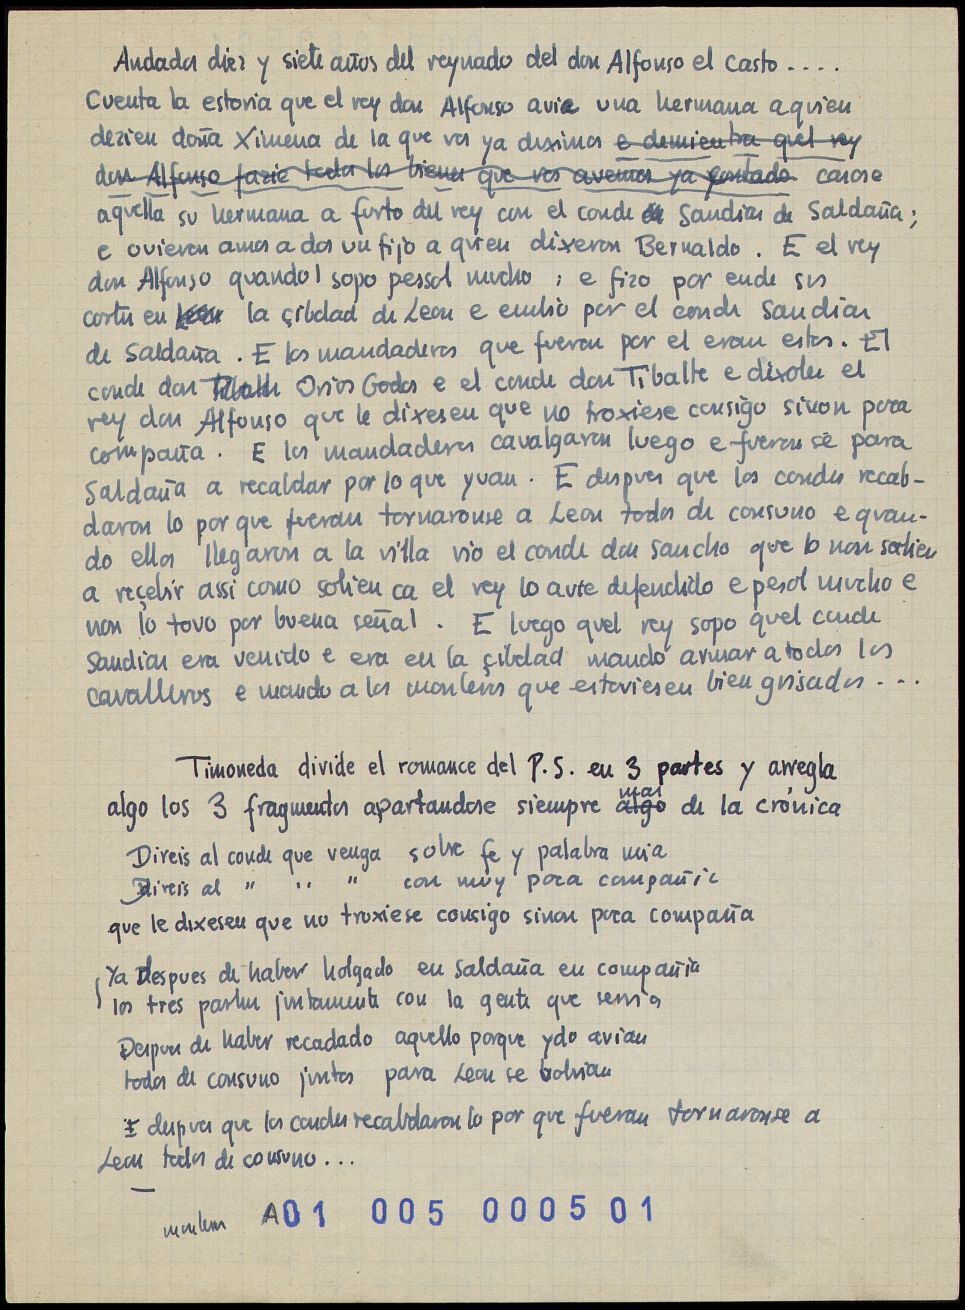 Andados diez y siete años del reynado del don Alfonso el casto ....
Cuenta la estoria que el rey don Alfonso avie una hermana a quien
dezien doña Ximena de la que vos ya diximos e demientra quel rey
don Alfonso fazie todos los bienes que vos avemos ya contado casose
aquella su hermana a furto del rey con el conde Sandias de Saldaña;
e ovieron amos a dos un fijo a quien dixeron Bernaldo. E el rey
don Alfonso quandol sopo pessol mucho; e fizo por ende sus
cortes en Leon la çibdad de Leon e embio por el conde Sandias
de Saldaña. E los mandaderos que fueron por el eran estos. El
conde don Tibalt Orios Godos e el conde don Tibalte e dixoles el
rey don Alfonso que le dixesen que no troxiese consigo sinon poca
compaña. E los mandaderos cavalgaron luego e fueronse para
Saldaña a recaldar por lo que yuan. E despues que los condes recab-
daron lo por que fueran tornaronse a Leon todos de consuno e quan-
do ellos llegaron a la villa vio el conde don Sancho que lo non salien
a reçebir assi como solien ca el rey lo avie defendido e pesol mucho e
non lo tovo por buena señal. E luego quel rey sopo quel conde
Sandias era venido e era en la çibdad mando armar a todos los
cavalleros e mando a los monteros que estoviesen bien guisados ...
Timoneda divide el romance del P.S. en 3 partes y arregla
algo los 3 fragmentos apartandose siempre algo mas de la crónica
Direis al conde que venga sobre fe y palabra mia
Direis al " " " con muy poca compañia
que le dixesen que no troxiese consigo sinon poca compaña
Ya Despues de haber holgado en Saldaña en compañia
los tres parten juntamente con la gente que servia
Despues de haber recadado aquello porque ydo avian
todos de consuno juntos para Leon se bolvian
E despues que los condes recabdaron lo por que fueran tornaronse a
Leon todos de consuno ...
monteros
A01 005 0005 01